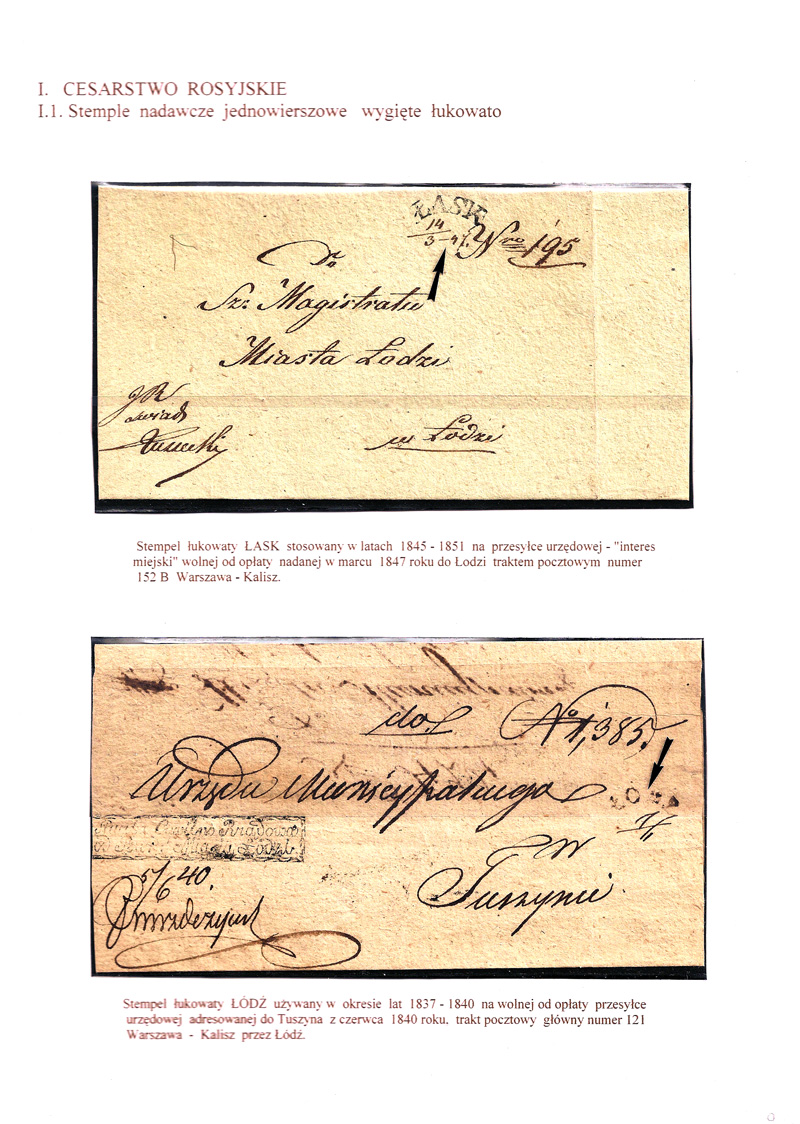 I. CESARSTWO ROSYJSKIE
I.1. Stemple nadawcze jednowierszowe wygięte łukowato
ŁASK
14/3 - 47. Nro 195
Do
Sz: Magistratu
Miasta Łodzi
w Łodzi
Stempel łukowaty ŁASK stosowany w latach 1845 - 1851 na przesyłce urzędowej - "interes
miejski" wolnej od opłaty nadanej w marcu 1847 roku do Łodzi traktem pocztowym numer
152 B Warszawa - Kalisz.
do.
No 1,385.
Urzędu Municypalnego
w
Tuszynie
5/6 40.
Stempel łukowaty ŁÓDŹ używany w okresie lat 1837 - 1840 na wolnej od opłaty przesyłce
urzędowej adresowanej do Tuszyna z czerwca 1840 roku. trakt pocztowy główny numer 121
Warszawa - Kalisz przez Łódź.